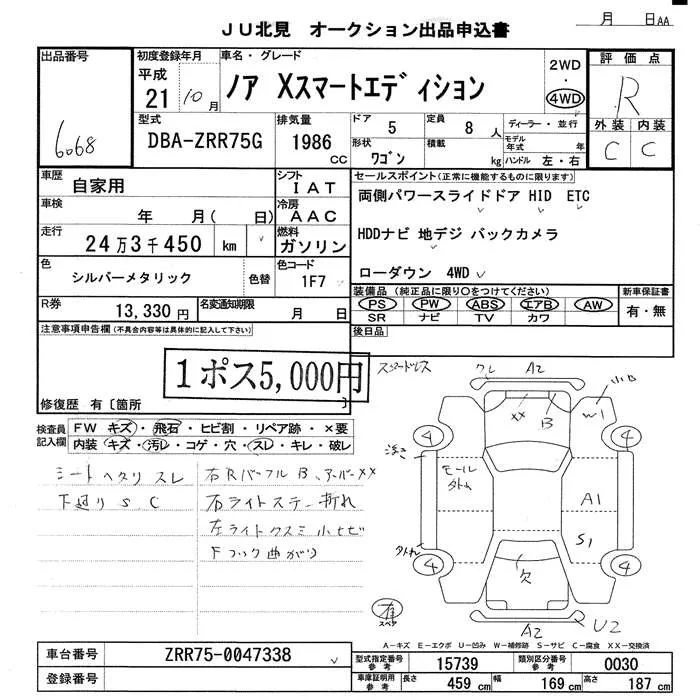 JU北見 オークション出品申込書
月 日AA
出品番号
6068
初度登録年月
平成
21 10月
車名・グレード
ノア Xスマートエディション
2WD
・
4WD
評価点
R
外装 内装
C C
型式
DBA-ZRR75G
排気量
1986
CC
ドア
5
定員
8人
ディーラー・並行
形状
ワゴン
積載
kg
モデル年式 年
ハンドル 左・右
車歴
自家用
シフト
IAT
車検
年 月( 日)
冷房
AAC
走行
24万3千450 km
燃料
ガソリン
色
シルバーメタリック
色替
色コード
1F7
R券
13,330円
名変通知期限
月 日
セールスポイント(正常に機能するものに限ります)
両側パワースライドドア HID ETC
HDDナビ 地デジ バックカメラ
ローダウン 4WD
装備品(純正品に限り○をつけてください)
PS PW ABS エアB AW
SR ナビ TV カワ
新車保証書
有・無
後日品
注意事項申告欄(不具合内容等は具体的に記入して下さい)
1ポス5,000円
修復歴 有〔箇所 〕
検査員記入欄
FW キズ・飛石・ヒビ割・リペア跡・×要
内装 キズ・汚レ・コゲ・穴・スレ・キレ・破レ
シートヘタリ スレ
下廻り S C
右Rバッフル B、アッパーXX
右ライトステー折れ
左ライトクスミ 小ヒビ
Fフック曲がり
スタッドレス
ワレ
A2
小B
XX
B
W1
4
4
浮き
モール
外れ
A1
S1
外れ
4
4
欠
有
スペア
A2
U2
A-キズ E-エクボ U-凹み W-補修跡 S-サビ C-腐食 XX-交換済
車台番号
ZRR75-0047338
登録番号
型式指定番号
参考
15739
類別区分番号
参考
0030
車庫証明用
参考
長さ
459 cm
幅
169 cm
高さ
187 cm